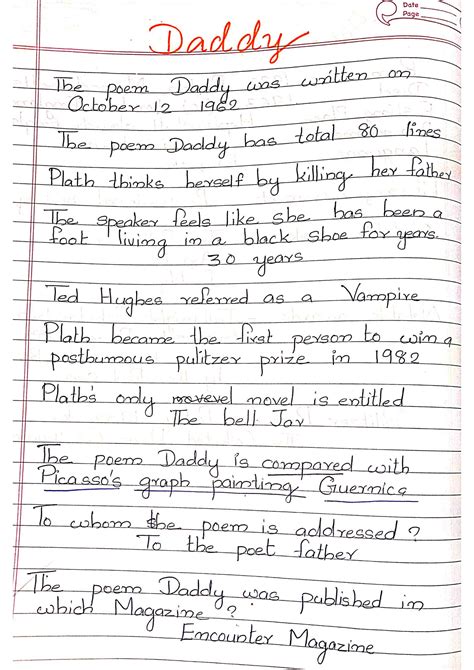 Date
Page
Daddy
The poem Daddy was written on
October 12 1962
The poem Daddy has total 80 lines
Plath thinks herself by killing her father
The speaker feels like she has been a
foot living in a black shoe for years.
30 years
Ted Hughes referred as a Vampire
Plath became the first person to win a
posthumous pulitzer prize in 1982
Plath's only novel is entitled
The bell Jar
The poem Daddy is compared with
Picasso's graph painting Guernica
To whom the poem is addressed ?
To the poet father
The poem Daddy was published in
which Magazine ?
Encounter Magazine